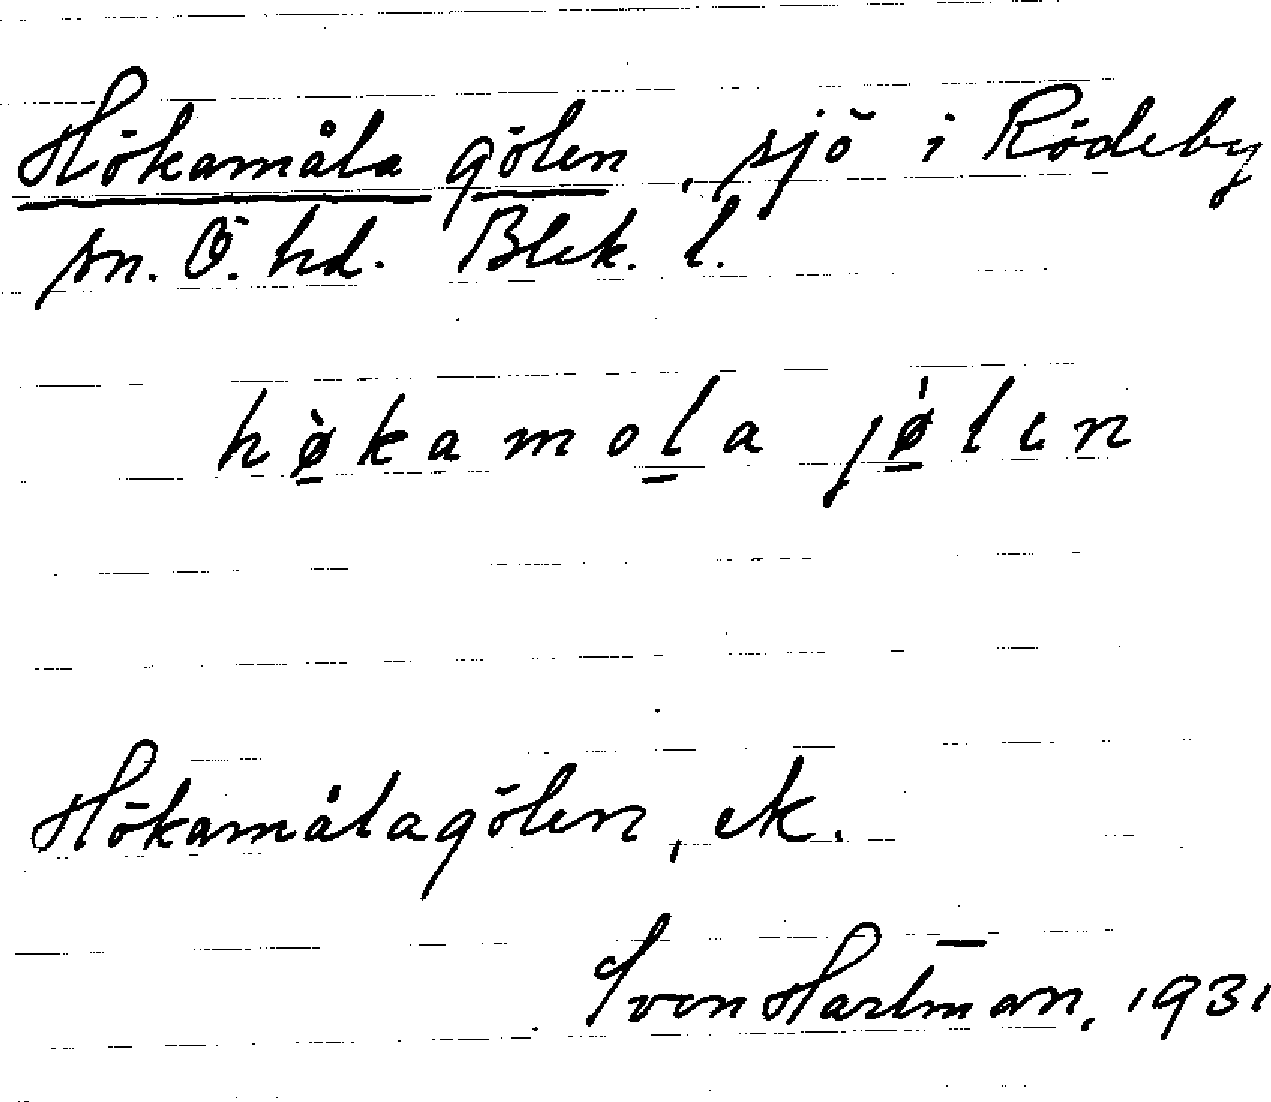 Hökamåla gölen, sjö i Rödeby
sn. Ö. hd. Blek. l.
hø̀kamola jø̍lın
Hökamålagölen, ek.
Sven Hartman, 1931